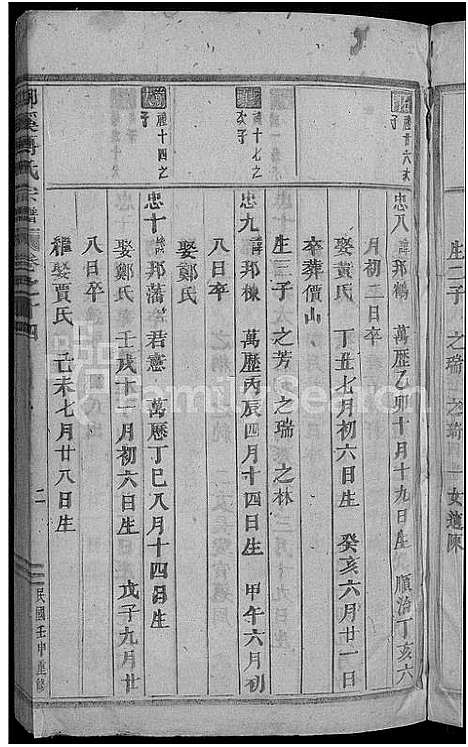 生二子 之瑞 之琦 一女適陳
禮廿六
忠八 諱邦鶴 萬歷乙卯十月十九日生 順治丁亥六
月初二日卒
娶黃氏 丁丑七月初六日生 癸亥六月廿一日
卒葬價山
生三子 之芳 之瑞 之林
禮十七之
次子
忠九 諱邦棟 萬歷丙辰四月十四日生 甲午六月初
八日卒
娶鄭氏
禮十四之
子
忠十 諱邦藩 字君憲 萬歷丁巳八月十四日生
娶鄭氏 壬戌十一月初六日生 戊子九月廿
八日卒
繼娶賈氏 己未七月廿八日生
柳溪傅氏宗譜 卷之十四
二
民國壬申重修
FamilySearch